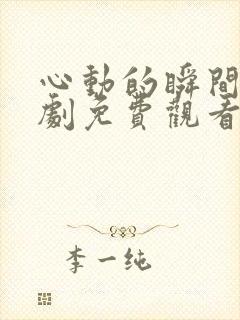 心動的瞬間
劇免費觀看
李一纯